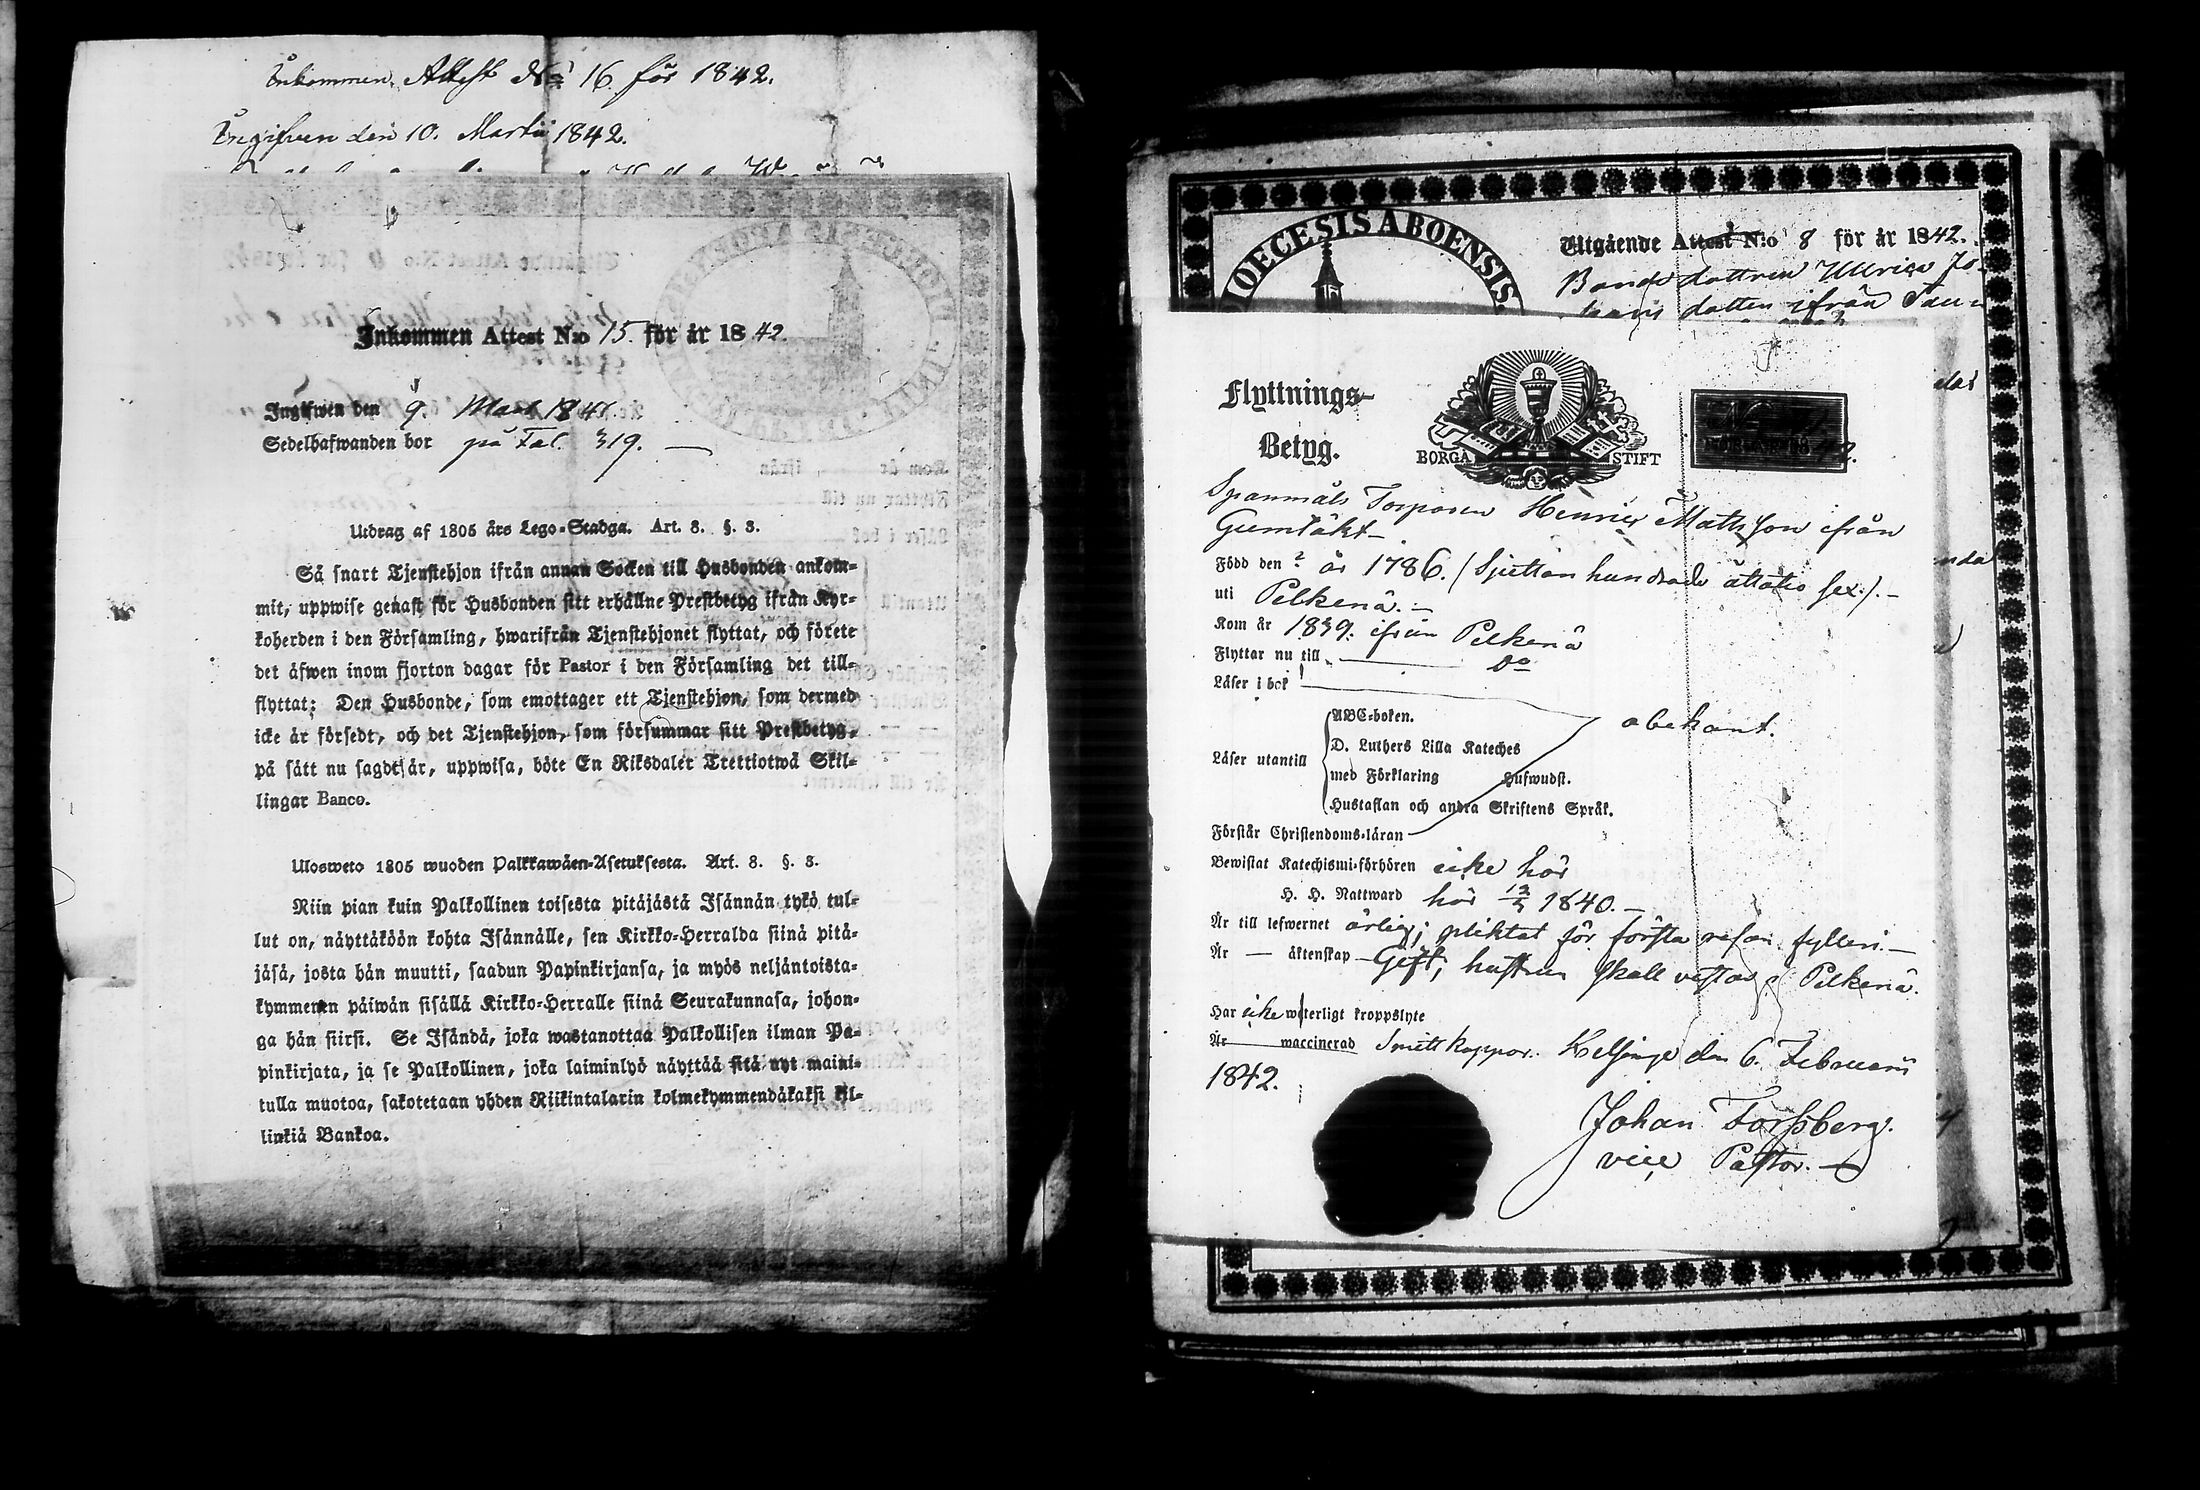 Inkommen Attest No 16 för 1842.
Ingifven den 10. Martii 1842.
Inkommen Attest N:o 15. för år 1842.
Ingifwen den 9. Mart 184
Sedelhafwanden bor på Fol. 319.
Utdrag af 1805 års Lego-Stadga. Art. 8. §. 3.
Så snart Tjenstehjon ifrån annan Socken till Husbonden ankom-
mit, uppwise genast för Husbonden sitt erhållne Prestbetyg ifrån Kyr-
koherden i den Församling, hwarifrån Tjenstehjonet flyttat, och förete
det äfwen inom fjorton dagar för Pastor i den Församling det till-
flyttat: Den Husbonde, som emottager ett Tjenstehjon, som dermed
icke är försedt, och det Tjenstehjon, som försummar sitt Prestbetyg,
på sätt nu sagdt är, uppwisa, böte En Riksdaler Trettiotwå Skil-
lingar Banco.
Ulosweto 1805 wuoden Palkkawäen-Asetuksesta. Art. 8. §. 3.
Niin pian kuin Palkollinen toisesta pitäjästä Isännän tykö tul-
lut on, näyttäköön kohta Isännälle, sen Kirkko-Herralda siinä pitä-
jäsä, josta hän muutti, saadun Papinkirjansa, ja myös neljäntoista-
kymmenen päiwän sisällä Kirkko-Herralle siinä Seurakunnasa, johon-
ga hän siirsi. Se Isändä, joka wastanottaa Palkollisen ilman Pa-
pinkirjata, ja se Palkollinen, joka laiminlyö näyttää sitä nyt maini-
tulla muotoa, sakotetaan yhden Riikintalarin kolmekymmendäkaksi kil-
linkiä Bankoa.
DIOECESIS ABOENSIS.
Utgående Attest N:o 8 för år 1842.
Bonde dottren Ullrica Jo-
hans dotter ifrån
Flyttnings-
Betyg.
BORGÅ STIFT
Spanmåls Torparen Henric Mattsson ifrån
Gumtäkt
Född den ? år 1786. (Sjuttonhundrade åttatio sex). -
uti Pelkenä. -
Kom år 1839. ifrån Pelkenä
Flyttar nu till do
Läser i bok
ABC-boken.
obekant.
D. Luthers Lilla Kateches
Läser utantill
med Förklaring Hufwudst.
Hustaflan och andra Skriftens Språk.
Förstår Christendoms-läran
Bewistat Katechismi-förhören icke här
H. H. Nattward här 1840. -
Är till lefwernet ärlig; pliktat för första resan fylleri. -
Är - äktenskap - Gift, hustrun skall vistas i Pelkenä.
Har icke weterligt kroppslyte
Är waccinerad Smittkoppor. Helsinge den 6. Februarii
1842.
Johan Forssberg.
vice Pastor.